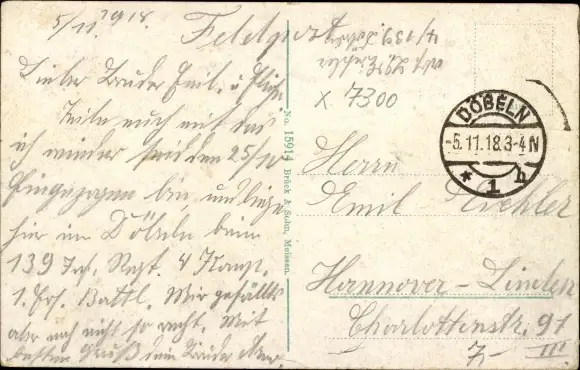 5/11. 1918.
Feldpost
Lieber Bruder Emil.
Teile euch mit das
ich wieder seit den 25/10
Eingezogen bin und liege
hier in Döbeln beim
139 Inf. Regt. 4 Komp.
1. Ers. Battl. Mir gefällts
aber noch nicht so recht. Mit
besten Gruß dein Bruder
No. 15914 Brück & Sohn, Meissen.
4/139 Döbeln
x 7300
DÖBELN
-5.11.18.3-4N
* 1 h
Herrn
Emil
Hannover-Linden
Charlottenstr. 91
III.
7,-